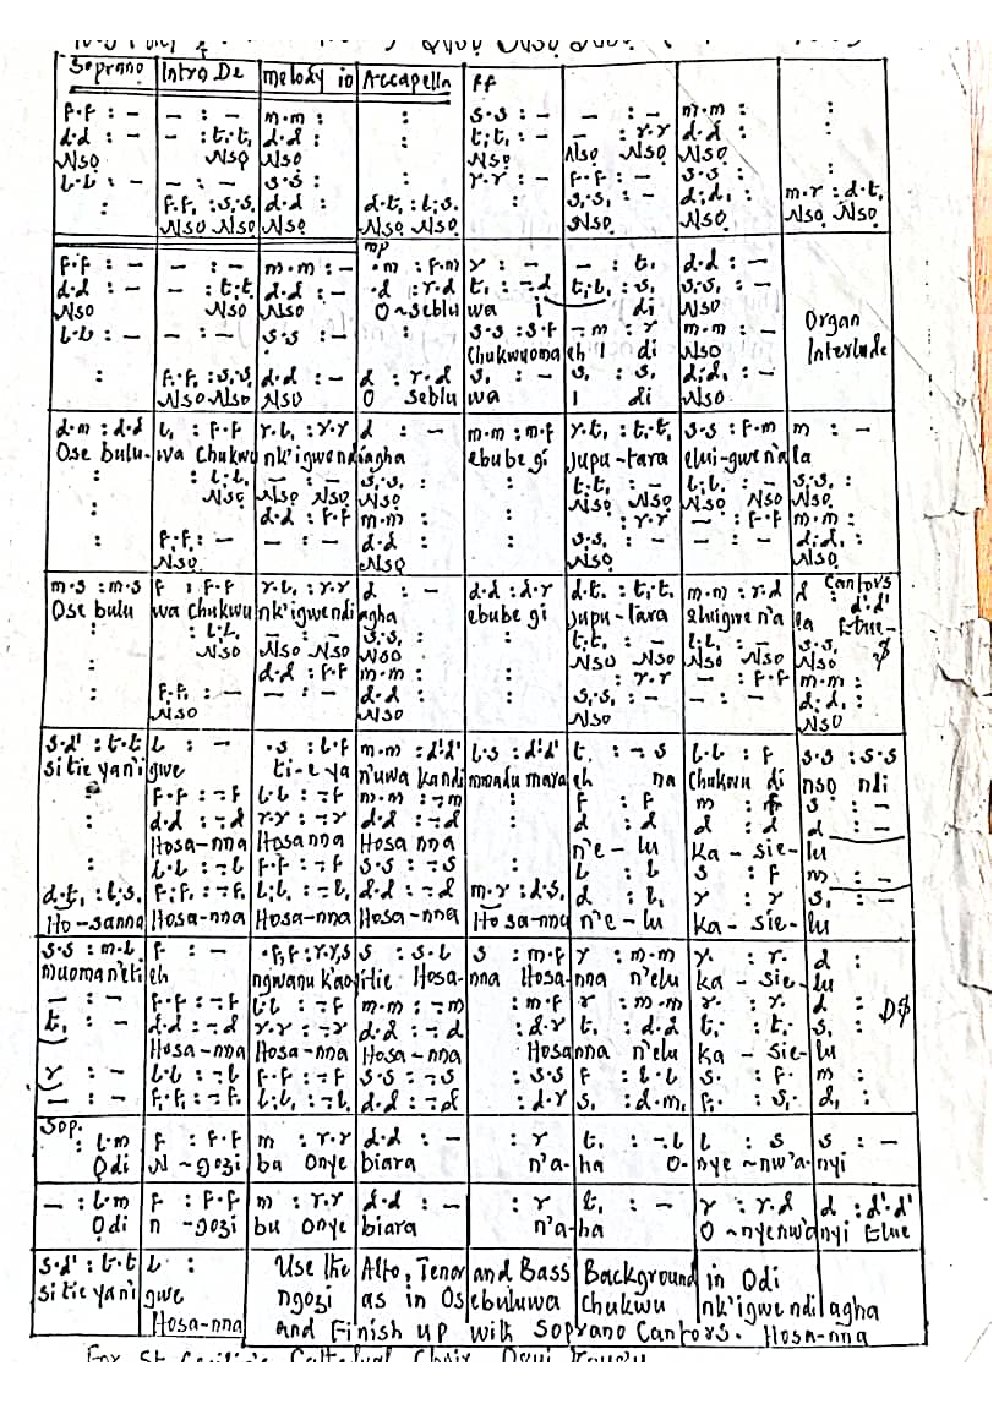 Soprano | Intro De | melody in | Accapella | ff
f.f : – | – : – | m.m : | : | s.s : – | – : – | m.m : | :
d.d : – | – : t.t. | d.d : | : | t.t. : – | – : r.r | d.d : | :
Nso | Nso | Nso | | Nso | Nso Nso | Nso
l.l : – | – : – | s.s : | | r.r : – | f.f : – | s.s : | :
: | f.f. : s.s. | d.d : | d.t. : l.s. | : | s.s. : – | d.d. : | m.r : d.t.
Nso Nso | Nso | Nso Nso | | Nso | Nso | Nso Nso
mp
f.f : – | – : – | m.m : – | .m : f.m | r : – | – : t. | d.d : –
d.d : – | – : t.t. | d.d : – | .d : r.d | t. : –.d | t.l. : s. | s.s. : –
Nso | Nso | Nso | O-seblu | wa i | di | Nso | Organ
l.l : – | – : – | s.s : – | | s.s : s.f | –.m : r | m.m : – | Interlude
Chukwuoma | eh I di | Nso
: | f.f. : s.s. | d.d : – | d : r.d | s. : – | s. : s. | d.d. : –
Nso Nso | Nso | O seblu | wa | I di | Nso
d.m : d.d | l. : f.f | r.l. : r.r | d : – | m.m : m.f | r.t. : t.t. | s.s : f.m | m : –
Ose bulu- | wa Chukwu | nk'igwendi | agha | ebube gi | jupu-tara | elui-gwen'a | la
: | : l.l. | – : – | s.s. : | : | t.t. : – | l.l. : – | s.s. :
Nso | Nso Nso | Nso | | Nso Nso | Nso Nso | Nso
: | | d.d : f.f | m.m : | : | : r.r | – : f.f | m.m :
: | f.f. : – | – : – | d.d : | : | s.s. : – | – : – | d.d. :
Nso | | Nso | | Nso | | Nso
m.s : m.s | f : f.f | r.l. : r.r | d : – | d.d : d.r | d.t. : t.t. | m.m : r.d | d Cantors : d'.d'
Ose bulu | wa Chukwu | nk'igwendi | agha | ebube gi | jupu-tara | eluigwe n'a | la Etue-
: | : l.l. | – : – | s.s. : | : | t.t. : – | l.l. : – | s.s.
Nso | Nso Nso | Nso | | Nso Nso | Nso Nso | Nso
: | | d.d : f.f | m.m : | : | : r.r | – : f.f | m.m :
: | f.f. : – | – : – | d.d : | : | s.s. : – | – : – | d.d. :
Nso | | Nso | | Nso | | Nso
s.d' : t.t | l : – | .s : l.f | m.m : d'.d' | l.s : d'.d' | t. : –.s | l.l : f | s.s : s.s
sitie yan'i | gwe | ti-e ya | n'uwa kandi | mmadu mara | eh na | Chukwu di | nso ndi
f.f : –.f | l.l : –.f | m.m : –.m | : | f : f | m : f | s : –
: | d.d : –.d | r.r : –.r | d.d : –.d | : | d : d | d : d | d : –
Hosa-nna | Hosanna | Hosa nna | | n'e-lu | ka-sie- | lu
: | l.l : –.l | f.f : –.f | s.s : –.s | : | l : l | s : f | m : –
d.t. : l.s. | f.f. : –.f. | l.l. : –.l. | d.d : –.d | m.r : d.s. | d : l. | r : r | s. : –
Ho-sanna | Hosa-nna | Hosa-nna | Hosa-nna | Ho sa-nna | n'e-lu | ka-sie- | lu
s.s : m.l | f : – | .f,f : r.r,s | s : s.l | s : m.f | r : m.m | r. : r. | d :
muoman'eti | eh | ngwanu kao | itie Hosa- | nna Hosa- | nna n'elu | ka-sie- | lu
– : – | f.f : –.f | l.l : –.f | m.m : –.m | : m.f | r : m.m | r. : r. | d : D$
t. : – | d.d : –.d | r.r : –.r | d.d : –.d | : d.r | t. : d.d | t. : t. | s. :
Hosa-nna | Hosa-nna | Hosa-nna | Hosa | nna n'elu | ka-sie- | lu
r : – | l.l : –.l | f.f : –.f | s.s : –.s | : s.s | f : l.l | s. : f. | m :
– : – | f.f. : –.f. | l.l. : –.l. | d.d : –.d | : d.r | s. : d.m. | f. : s. | d. :
Sop.
: l.m | f : f.f | m : r.r | d.d : – | : r | t. : –.l | l : s | s : –
Odi | N-gozi | ba Onye | biara | n'a- | ha O- | nye-nw'a- | nyi
– : l.m | f : f.f | m : r.r | d.d : – | : r | t. : – | r : r.d | d : d'.d'
Odi | n-gozi | bu Onye | biara | n'a- | ha | O-nyenw'a | nyi Etue
s.d' : t.t | l : | Use the Alto, Tenor and Bass Background in Odi
sitie yan'i | gwe | ngozi as in Osebuluwa Chukwu nk'igwendilagha
Hosa-nna | And Finish up with Soprano Cantors. Hosa-nna
For St Cecilia's Cathedral Choir